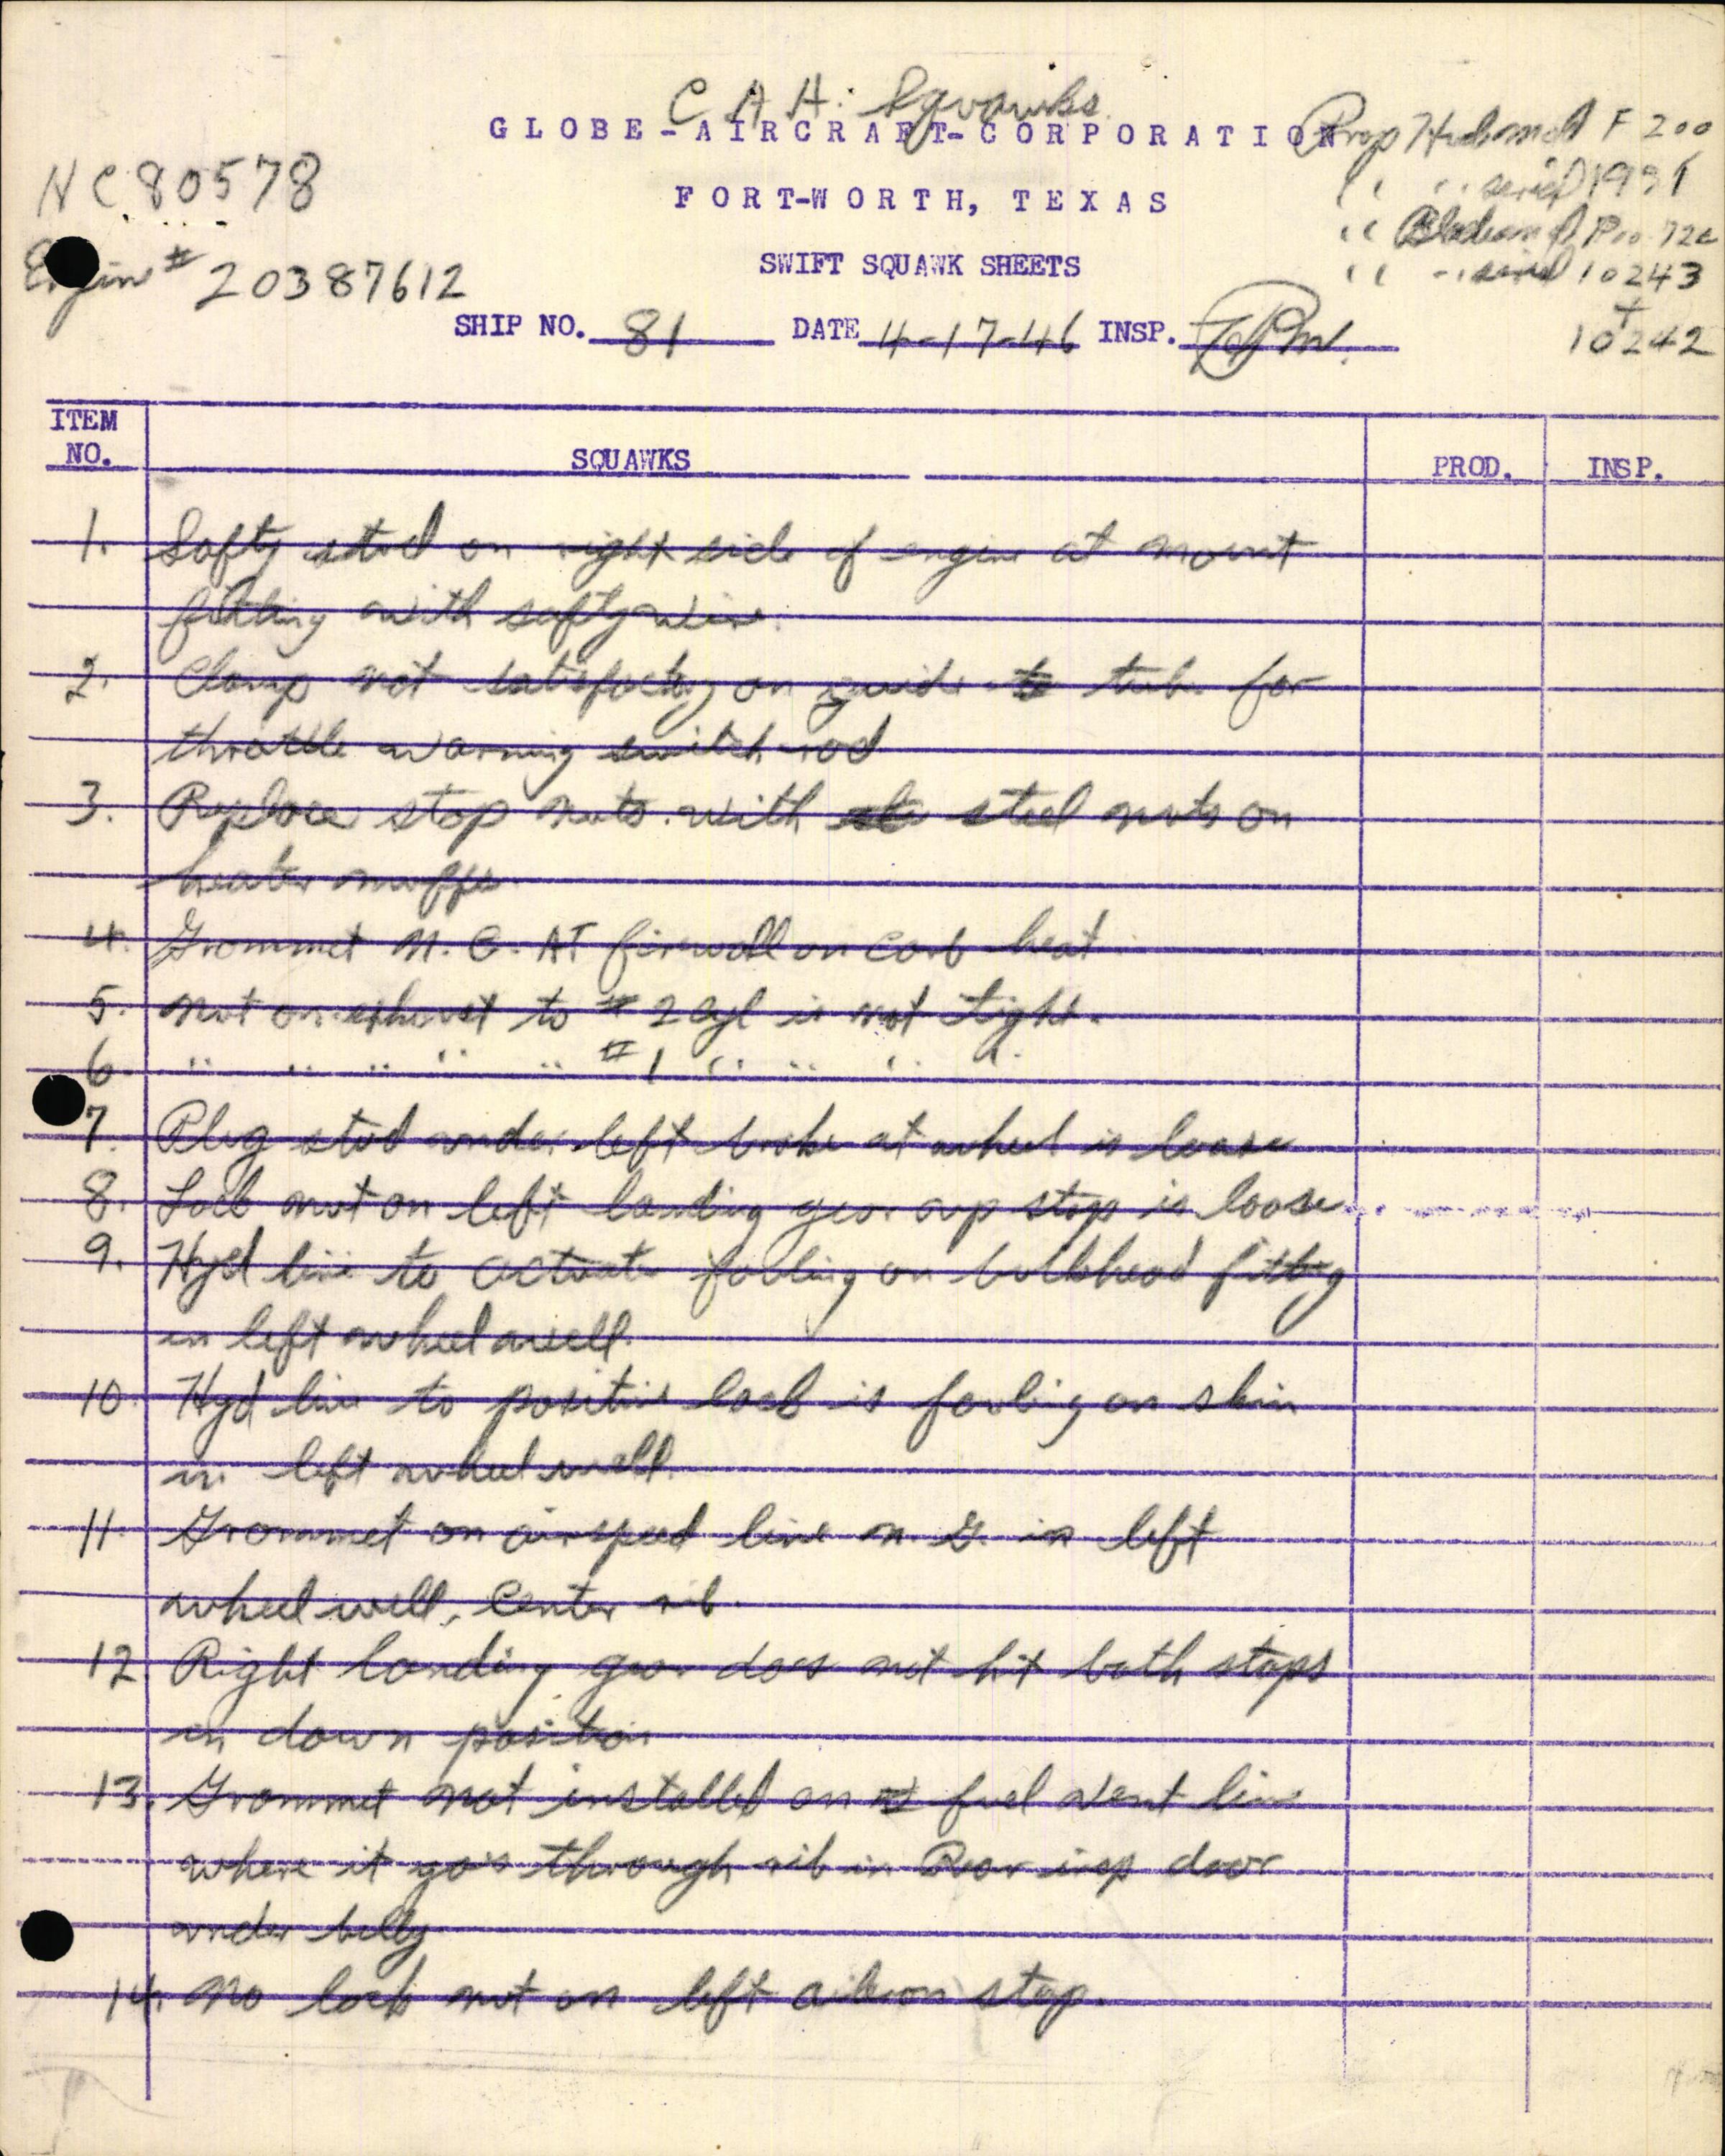 C A A. Squawks.
GLOBE-AIRCRAFT-CORPORATION
FORT-WORTH, TEXAS
SWIFT SQUAWK SHEETS
NC 80578
Engine # 20387612
Prop Hub model F 200
" " serial 1991
" Blade model Pro 72
" " serial 10243
+
10242
SHIP NO. 81 DATE 4-17-46 INSP.
ITEM NO. SQUAWKS PROD. INSP.
1. Safty stud on right side of engine at mount
fitting with safty wire.
2. Clamp not satisfactory on guide tube for
throttle warning switch rod
3. Replace stop nuts with steel nuts on
heater muffs.
4. Grommet N. G. AT firewall on carb heat.
5. Nut on exhaust to # 2 cyl is not tight.
6. " " " " " # 1 " " " "
7. Plug stud under left brake at wheel is loose
8. Lock nut on left landing gear up stop is loose
9. Hyd line to actuator fouling on bulkhead fitting
in left wheel well.
10. Hyd line to positive lock is fouling on skin
in left wheel well.
11. Grommet on airspeed line n. G. in left
wheel well, Center rib.
12. Right landing gear does not hit both stops
in down position
13. Grommet not installed on fuel vent line
where it goes through rib in Rear insp door
under belly
14. No lock nut on left aileron stop.